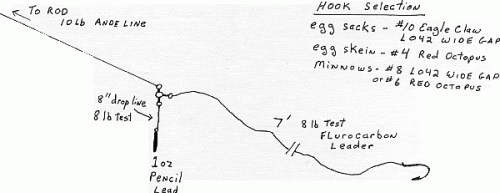 TO ROD
10 lb ANDE LINE
HOOK SELECTION
egg sacks - #10 Eagle Claw
L042 WIDE GAP
egg skein - #4 Red Octopus
MINNOWS - #8 L042 WIDE GAP
or #6 RED OCTOPUS
8" drop line
8 lb Test
7' 8 lb Test
FLurocarbon
Leader
1 oz
Pencil
Lead